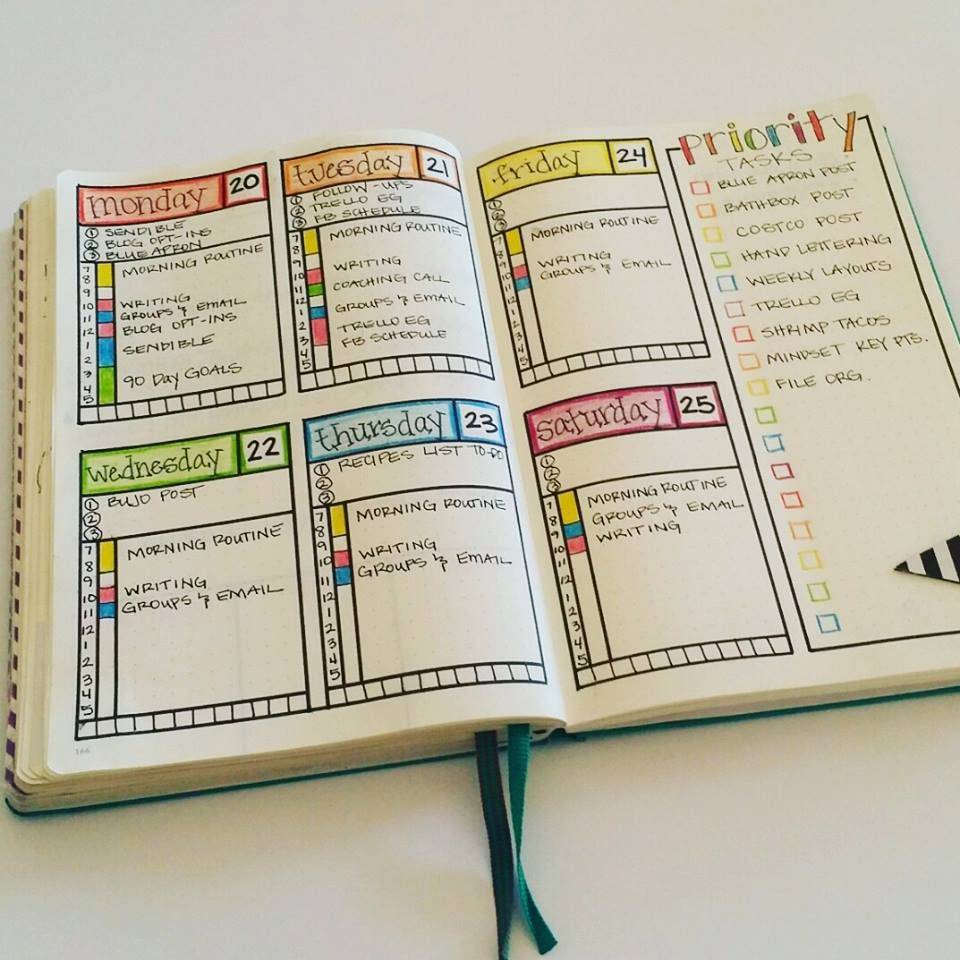 monday 20
① SENDIBLE
② BLOG OPT-INS
③ BLUE APRON
7
8
9
10
11
12
1
2
3
4
5
MORNING ROUTINE
WRITING
GROUPS & EMAIL
BLOG OPT-INS
SENDIBLE
90 DAY GOALS
tuesday 21
① FOLLOW-UPS
② TRELLO EG
③ FB SCHEDULE
7
8
9
10
11
12
1
2
3
4
5
MORNING ROUTINE
WRITING
COACHING CALL
GROUPS & EMAIL
TRELLO EG
FB SCHEDULE
wednesday 22
① BUJO POST
②
③
7
8
9
10
11
12
1
2
3
4
5
MORNING ROUTINE
WRITING
GROUPS & EMAIL
thursday 23
① RECIPES LIST TO-DO
②
③
7
8
9
10
11
12
1
2
3
4
5
MORNING ROUTINE
WRITING
GROUPS & EMAIL
166
friday 24
①
②
③
7
8
9
10
11
12
1
2
3
4
5
MORNING ROUTINE
WRITING
GROUPS & EMAIL
saturday 25
①
②
③
7
8
9
10
11
12
1
2
3
4
5
MORNING ROUTINE
GROUPS & EMAIL
WRITING
priority
TASKS
BLUE APRON POST
BATHBOX POST
COSTCO POST
HAND LETTERING
WEEKLY LAYOUTS
TRELLO EG
SHRIMP TACOS
MINDSET KEY PTS.
FILE ORG.